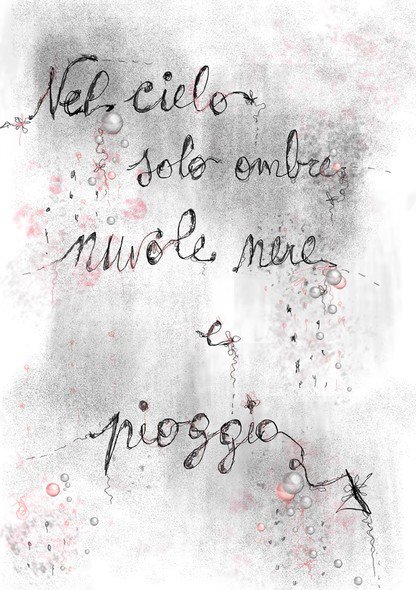 Nel cielo
solo ombre
nuvole nere
e
pioggia